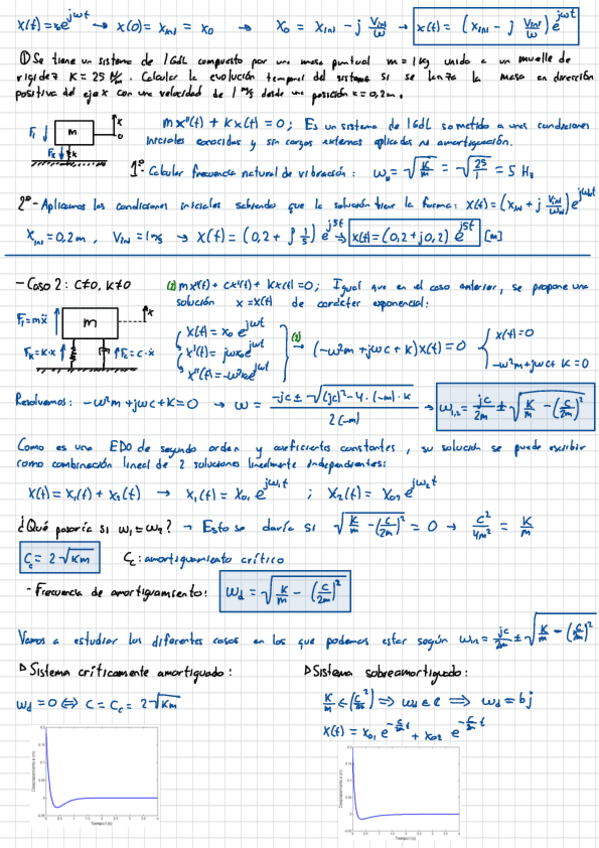 x(t)=x₀e^{jωt} → x(0)= x_{ini} = x₀ → x₀ = x_{ini} - j V_{ini}/ω → x(t) = (x_{ini} - j V_{ini}/ω) e^{jωt}
① Se tiene un sistema de 1GdL compuesto por una masa puntual m=1kg unido a un muelle de
rigidez K = 25 N/m. Calcular la evolución temporal del sistema si se lanza la masa en dirección
positiva del eje x con una velocidad de 1 m/s desde una posición x=0,2m.
m
x
0
mx''(t) + Kx(t) = 0 ; Es un sistema de 1GdL sometido a unas condiciones
iniciales conocidas y sin cargas externas aplicadas no amortiguación.
1º- Calcular frecuencia natural de vibración: ω_n = √(K/m) = √(25/1) = 5 Hz
2º- Aplicamos las condiciones iniciales sabiendo que la solución tiene la forma: x(t) = (x_{ini} + j V_{ini}/ω_n) e^{jωt}
x_{ini} = 0,2m , V_{ini} = 1m/s → x(t) = (0,2 + j 1/5) e^{j5t} → x(t) = (0,2 + j0,2) e^{j5t} [m]
- Caso 2: C≠0, K≠0
(1) mx''(t) + cx'(t) + Kx(t) = 0 ; Igual que en el caso anterior, se propone una
solución x = x(t) de carácter exponencial:
F_I=mẍ
m
x
F_K=K·x
F_C=C·ẋ
x(t) = x₀ e^{jωt}
x'(t) = jωx₀e^{jωt}
x''(t) = -ω²x₀e^{jωt}
(1) → (-ω²m + jωc + K) x(t) = 0
x(t) = 0
-ω²m + jωc + K = 0
Resolvemos: -ω²m + jωc + K = 0 → ω = (-jc ± √((jc)² - 4·(-m)·K)) / 2(-m) → ω_{1,2} = jc/2m ± √(K/m - (c/2m)²)
Como es una EDO de segundo orden y coeficientes constantes, su solución se puede escribir
como combinación lineal de 2 soluciones linealmente independientes:
x(t) = x₁(t) + x₂(t) → x₁(t) = x₀₁ e^{jω₁t} ; x₂(t) = x₀₂ e^{jω₂t}
¿Qué pasaría si ω₁=ω₂? → Esto se daría si √(K/m - (c/2m)²) = 0 → c²/4m² = K/m
C_c = 2√Km
C_c: amortiguamiento crítico
- Frecuencia de amortiguamiento: ω_d = √(K/m - (c/2m)²)
Vamos a estudiar los diferentes casos en los que podemos estar según ω_{1,2} = jc/2m ± √(K/m - (c/2m)²)
▷ Sistema críticamente amortiguado:
ω_d = 0 ⟺ C = C_c = 2√Km
▷ Sistema sobreamortiguado:
K/m < (c/2m)² ⟹ ω_d ∈ ℂ ⟹ ω_d = bj
Desplazamiento x (m)
Tiempo t (s)
Desplazamiento x (m)
Tiempo t (s)